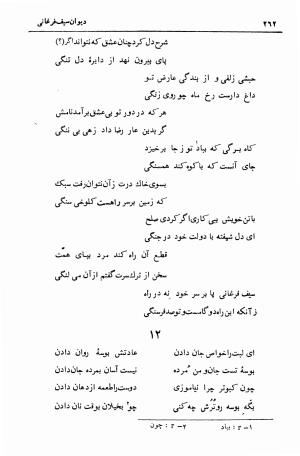 ۲۶۲ دیوان سیف فرغانی
شرح دل کرد چنان عشق که نتواند اگر (؟)
پای بیرون نهد از دایرهٔ دل تنگی
حبشی زلفی و از بندگی عارض تو
داغ دارست رخ ماه چو روی زنگی
هر که در دور تو بی عشق برآمد نامش
گر بدین عار رضا داد زهی بی ننگی
کاه برگی که بباد تو ز جا برخیزد
جای آنست که با کوه کند همسنگی
بسوی خاك درت زآن نتوان رفت سبك
که زمین بر سر راهست کلوخی سنگی
با تن خویش بپی کاری اگر کردی صلح
ای دل شیفته با دولت خود در جنگی
قطع آن راه کند مرد بپای همّت
سخن از ترك سرت گفتم از آن می لنگی
سیف فرغانی پا بر سر خود نه در راه
زآنکه این راه دو گامست و تو صد فرسنگی
۱۲
ای لبت را خواص جان دادن عادتش بوسهٔ روان دادن
بوسهٔ تست جان و من مرده نیست آسان بمرده جان دادن
چون کبوتر چرا نیاموزی دوست را طعمه از دهان دادن
بگه بوسه رو تُرُش چه کنی چو بخیلان بوقت نان دادن
۱- ۳: بیاد ۲- ۳: چون